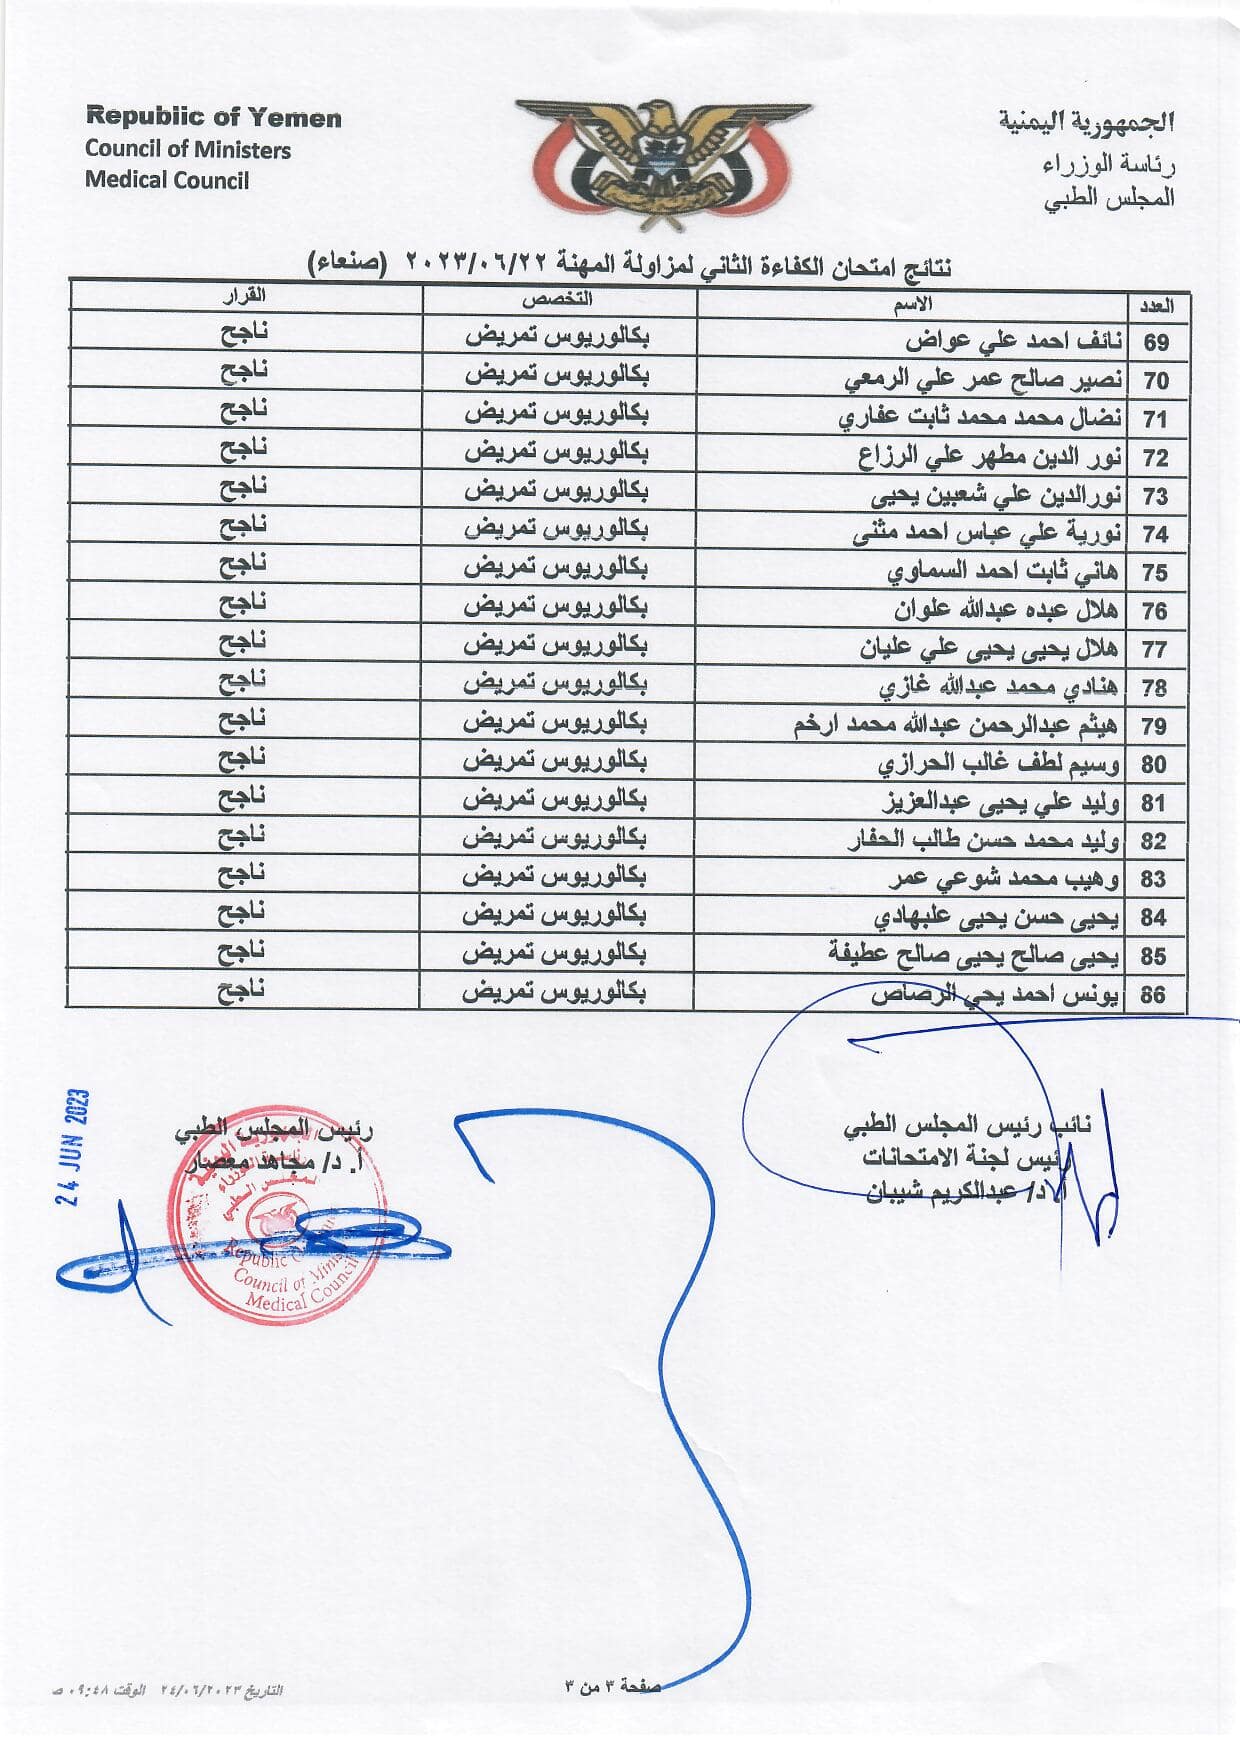 Republic of Yemen
Council of Ministers
Medical Council
الجمهورية اليمنية
رئاسة الوزراء
المجلس الطبي
نتائج امتحان الكفاءة الثاني لمزاولة المهنة ٢٠٢٣/٠٦/٢٢ (صنعاء)
العدد الاسم التخصص القرار
69 نائف احمد علي عواض بكالوريوس تمريض ناجح
70 نصير صالح عمر علي الرمعي بكالوريوس تمريض ناجح
71 نضال محمد محمد ثابت عفاري بكالوريوس تمريض ناجح
72 نور الدين مطهر علي الرزاع بكالوريوس تمريض ناجح
73 نورالدين علي شعبين يحيى بكالوريوس تمريض ناجح
74 نورية علي عباس احمد مثنى بكالوريوس تمريض ناجح
75 هاني ثابت احمد السماوي بكالوريوس تمريض ناجح
76 هلال عبده عبدالله علوان بكالوريوس تمريض ناجح
77 هلال يحيى يحيى علي عليان بكالوريوس تمريض ناجح
78 هنادي محمد عبدالله غازي بكالوريوس تمريض ناجح
79 هيثم عبدالرحمن عبدالله محمد ارخم بكالوريوس تمريض ناجح
80 وسيم لطف غالب الحرازي بكالوريوس تمريض ناجح
81 وليد علي يحيى عبدالعزيز بكالوريوس تمريض ناجح
82 وليد محمد حسن طالب الحفار بكالوريوس تمريض ناجح
83 وهيب محمد شوعي عمر بكالوريوس تمريض ناجح
84 يحيى حسن يحيى علبهادي بكالوريوس تمريض ناجح
85 يحيى صالح يحيى صالح عطيفة بكالوريوس تمريض ناجح
86 يونس احمد يحي الرصاص بكالوريوس تمريض ناجح
نائب رئيس المجلس الطبي
رئيس لجنة الامتحانات
أ.د/ عبدالكريم شيبان
رئيس المجلس الطبي
أ. د/ مجاهد معصار
24 JUN 2023
الجمهورية اليمنية
رئاسة الوزراء
المجلس الطبي
Republic
Council of Minis
Medical Council
صفحة ٣ من ٣
التاريخ ٢٤/٠٦/٢٠٢٣ الوقت ٠٩:٤٨ ص